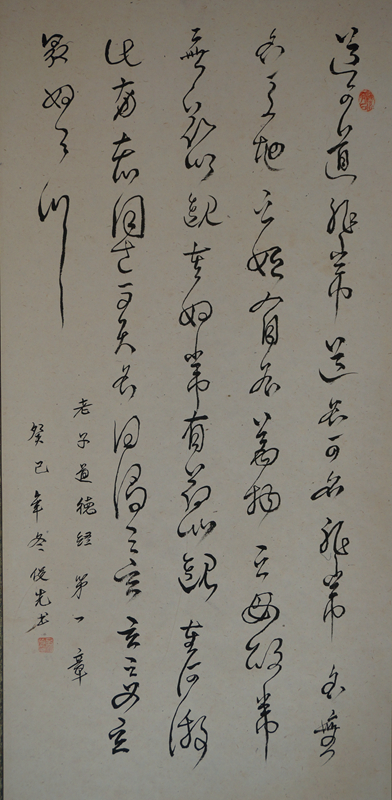 道可道非常道名可名非常名無
名天地之始有名萬物之母故常
無欲以觀其妙常有欲以觀其徼
此兩者同出而異名同謂之玄玄之又玄
眾妙之門
老子道德經 第一章
癸巳年冬俊先书